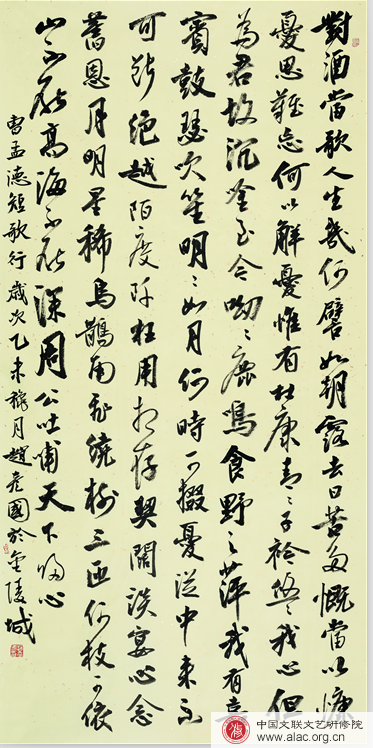 對酒當歌人生幾何譬如朝露去日苦多慨當以慷
憂思難忘何以解憂惟有杜康青々子衿悠々我心但
為君故沉吟至今呦々鹿鳴食野之苹我有嘉
賓鼓瑟吹笙明々如月何時可掇憂從中來不
可斷絕越陌度阡枉用相存契闊談宴心念
舊恩月明星稀烏鵲南飛繞樹三匝何枝可依
山不厭高海不厭深周公吐哺天下歸心
曹孟德短歌行歲次乙未穐月趙彥國於金陵城
中国文联文艺研修院
www.alac.org.cn